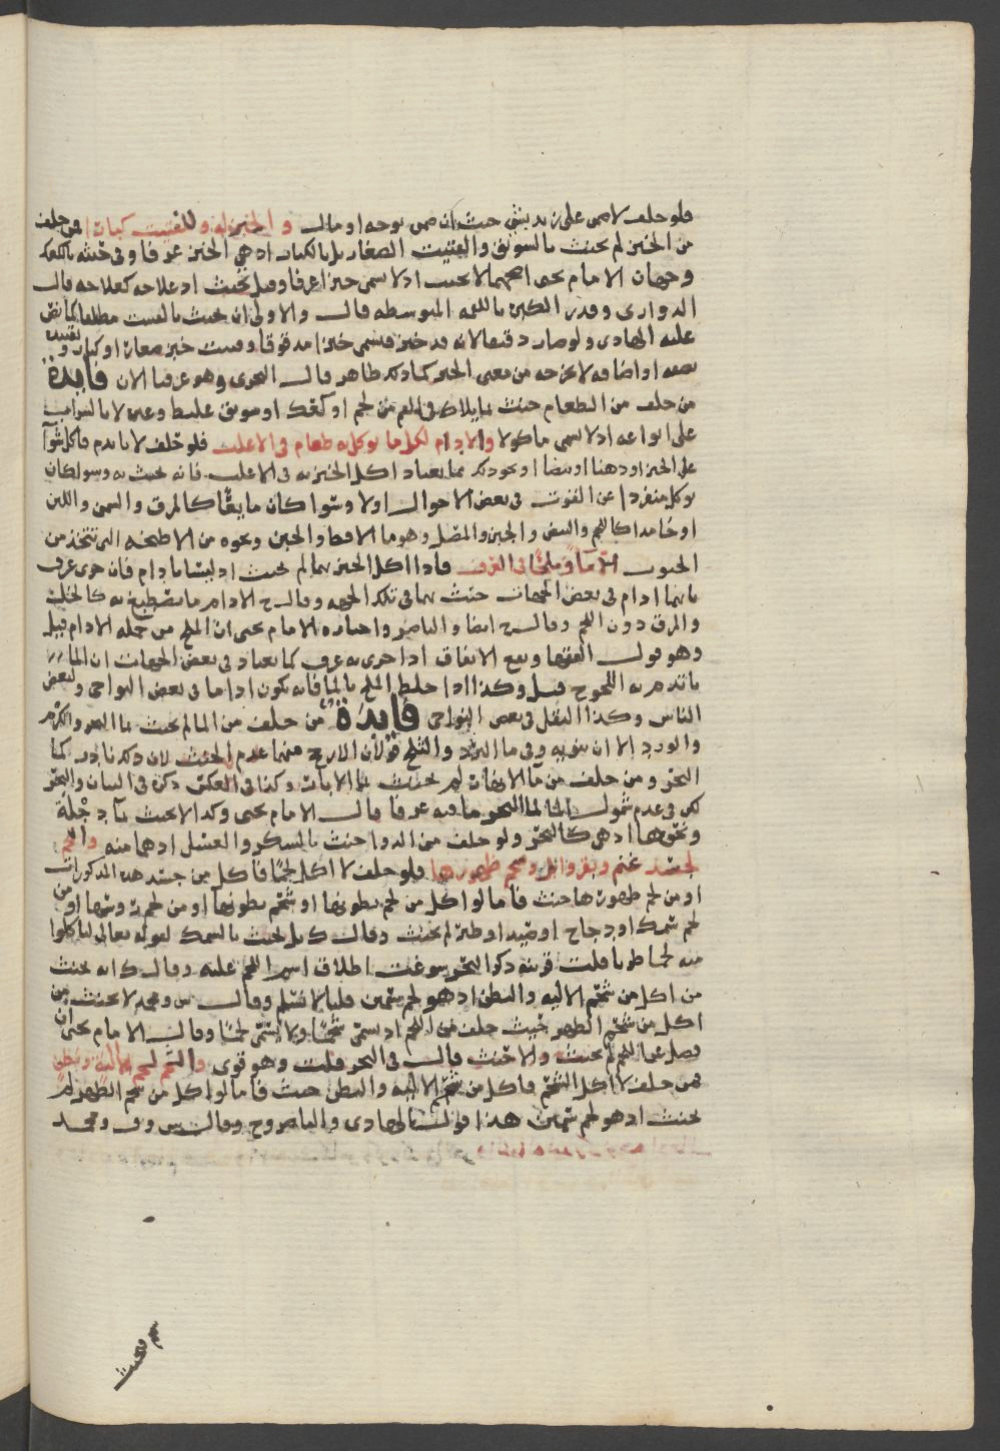 فلو حلف لا ضمن على زيد بشي حنث ان ضمن بوجه او مال و الخبز له وللفتيت كبارا فمن حلف
من الخبز لم يحنث بالسويق والفتيت الصغار بل بالكبار اذ هي الخبز عرفا وفي حنثه بالكعك
وجهان الامام يحيى اصحهما لا يحنث اذ لا يسمى خبزا عرفا وقيل يحنث اذ علاجه كعلاجه قال
الدواري وقدر الكبير باللقمه المتوسطه قال والاولى ان يحنث بالفتيت مطلقا كما نص
عليه الهادي ولو صار دقيقا لانه قد خبز فيسمى خبزا مدقوقا وفتيت خبز صغارا او كبارا وتقييده
بصفه او اضافه لا يخرجه من معنى الخبز كما ذكر ظاهر قال البحري وهو عرفنا الان فايدة
من حلف من الطعام حنث بما يلاك في الفم من لحم او كعك او سويق غليظ وغيره لا بالشراب
على انواعه اذ لا يسمى ماكولا والادام لكل ما يوكل به طعام في الاغلب فلو حلف لا ياتدم فاكل شوآ
على الخبز او دهنا او بيضا او نحو ذلك مما يعتاد اكل الخبز به في الاغلب فانه يحنث به وسوا كان
يوكل منفردا عن القوت في بعض الاحوال اولا وسوا كان مايعًا كالمرق والسمن واللبن
او جامدا كاللحم والبيض والجبن والمصل وهو ما الاقط والجبن ونحوه من الاطبخه التي تتخذ من
الحبوب الا مآ وملحًا في العرف فاذا اكل الخبز بهما لم يحنث اذ ليسا بادام فان جرى عرف
بانهما ادام في بعض الجهات حنث بهما في تلك الجهه وقال ح الادام ما يصطبغ به كالخل
والمرق دون اللحم وقال ح ايضا والناصر واختاره الامام يحيى ان الملح من جمله الادام قيل
وهو قول الفقها ويقع الاتفاق اذا جرى به عرف كما يعتاد في بعض الجهات ان الما
ياتدم به اللحوح قيل وكذا اذا خلط الملح بالما فانه يكون اداما في بعض النواحي ولبعض
الناس وكذا البقل في بعض النواحي فايدة من حلف من الما لم يحنث بما البحر والكرم
والورد الا ان ينويه وفي ما البرد والثلج قولان الارجح منهما عدم الحنث لان ذكر نادر كما
البحر ومن حلف من مآ الانهار لم يحنث بما الابار وكذا في العكس ذكره في البيان والبحر
لكن في عدم شمول الما لما البحر ما فيه عرفا قال الامام يحيى وكذا لا يحنث بمآ دجلة
ونحوها اذ هي كالبحر ولو حلف من الدوا حنث بالسكر والعسل اذ هما منه واللحم
لجسد غنم وبقر وابل وشحم ظهورها فلو حلف لا اكل لحمًا فاكل من جسد هذه المذكورات
او من لحم ظهورها حنث فاما لو اكل من لحم بطونها او شحم بطونها او من لحم روسها او من
لحم سمك او دجاج او صيد او طير لم يحنث وقال ك بل يحنث بالسمك لقوله تعالى لتاكلوا
منه لحما طريا قلت قرينه ذكر البحر سوغت اطلاق اسم اللحم عليه وقال ك انه يحنث
من اكل من شحم الاليه والبطن اذ هو لحم سمين قلنا لا نسلم وقال س ومحمد لا يحنث من
اكل من شحم الظهر حيث حلف من اللحم اذ يسمى شحمًا ولا يسمى لحمًا وقال الامام يحيى ان
فصل عن اللحم لم يحنث والا حنث قال في البحر قلت وهو قوي والشحم لشحم الالية وبطن
فمن حلف لا اكل الشحم فاكل من شحم الاليه والبطن حنث فاما لو اكل من شحم الظهر لم
يحنث اذ هو لحم سمين هذا قول الهادي والناصر وح وقال س وف ومحمد